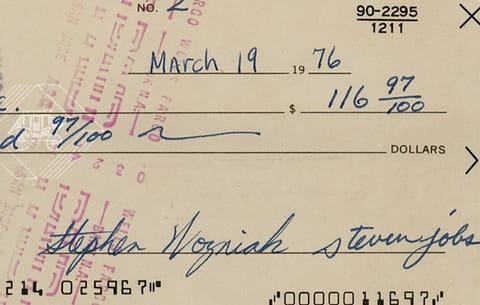 NO. 2
90-2295
1211
March 19 1976
$ 116 97/100
d 97/100
DOLLARS
Stephen Wozniak steven jobs
214 025967
0000011697
WELLS FARGO
SAN JOSE